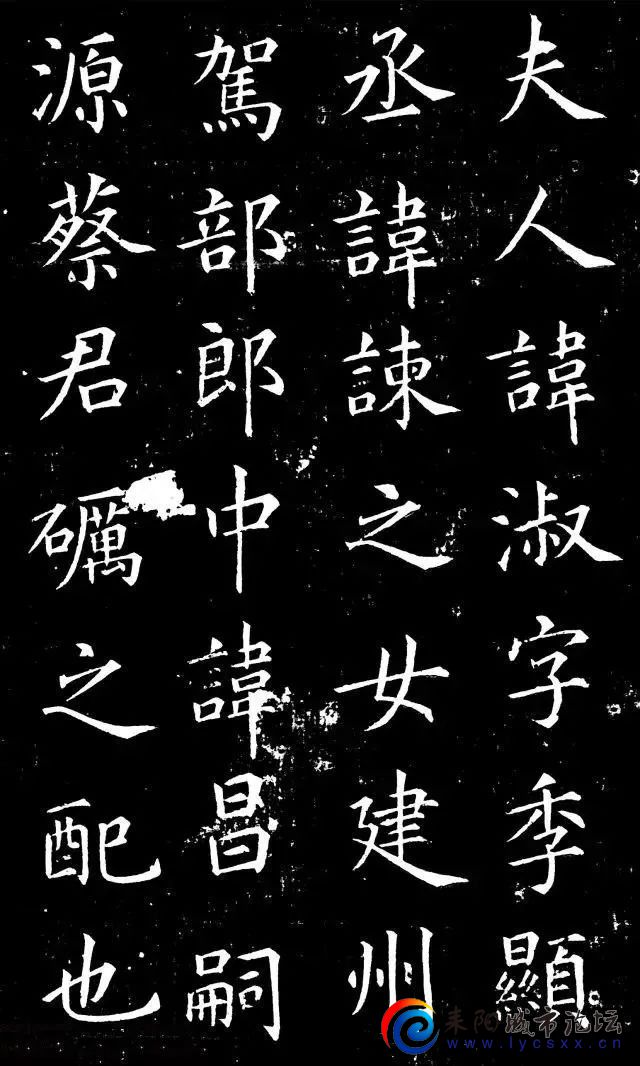 夫人諱淑字季顯
丞諱諫之女建州
駕部郎中諱昌嗣
源蔡君礪之配也
耒阳城市论坛
www.lycsxx.cn